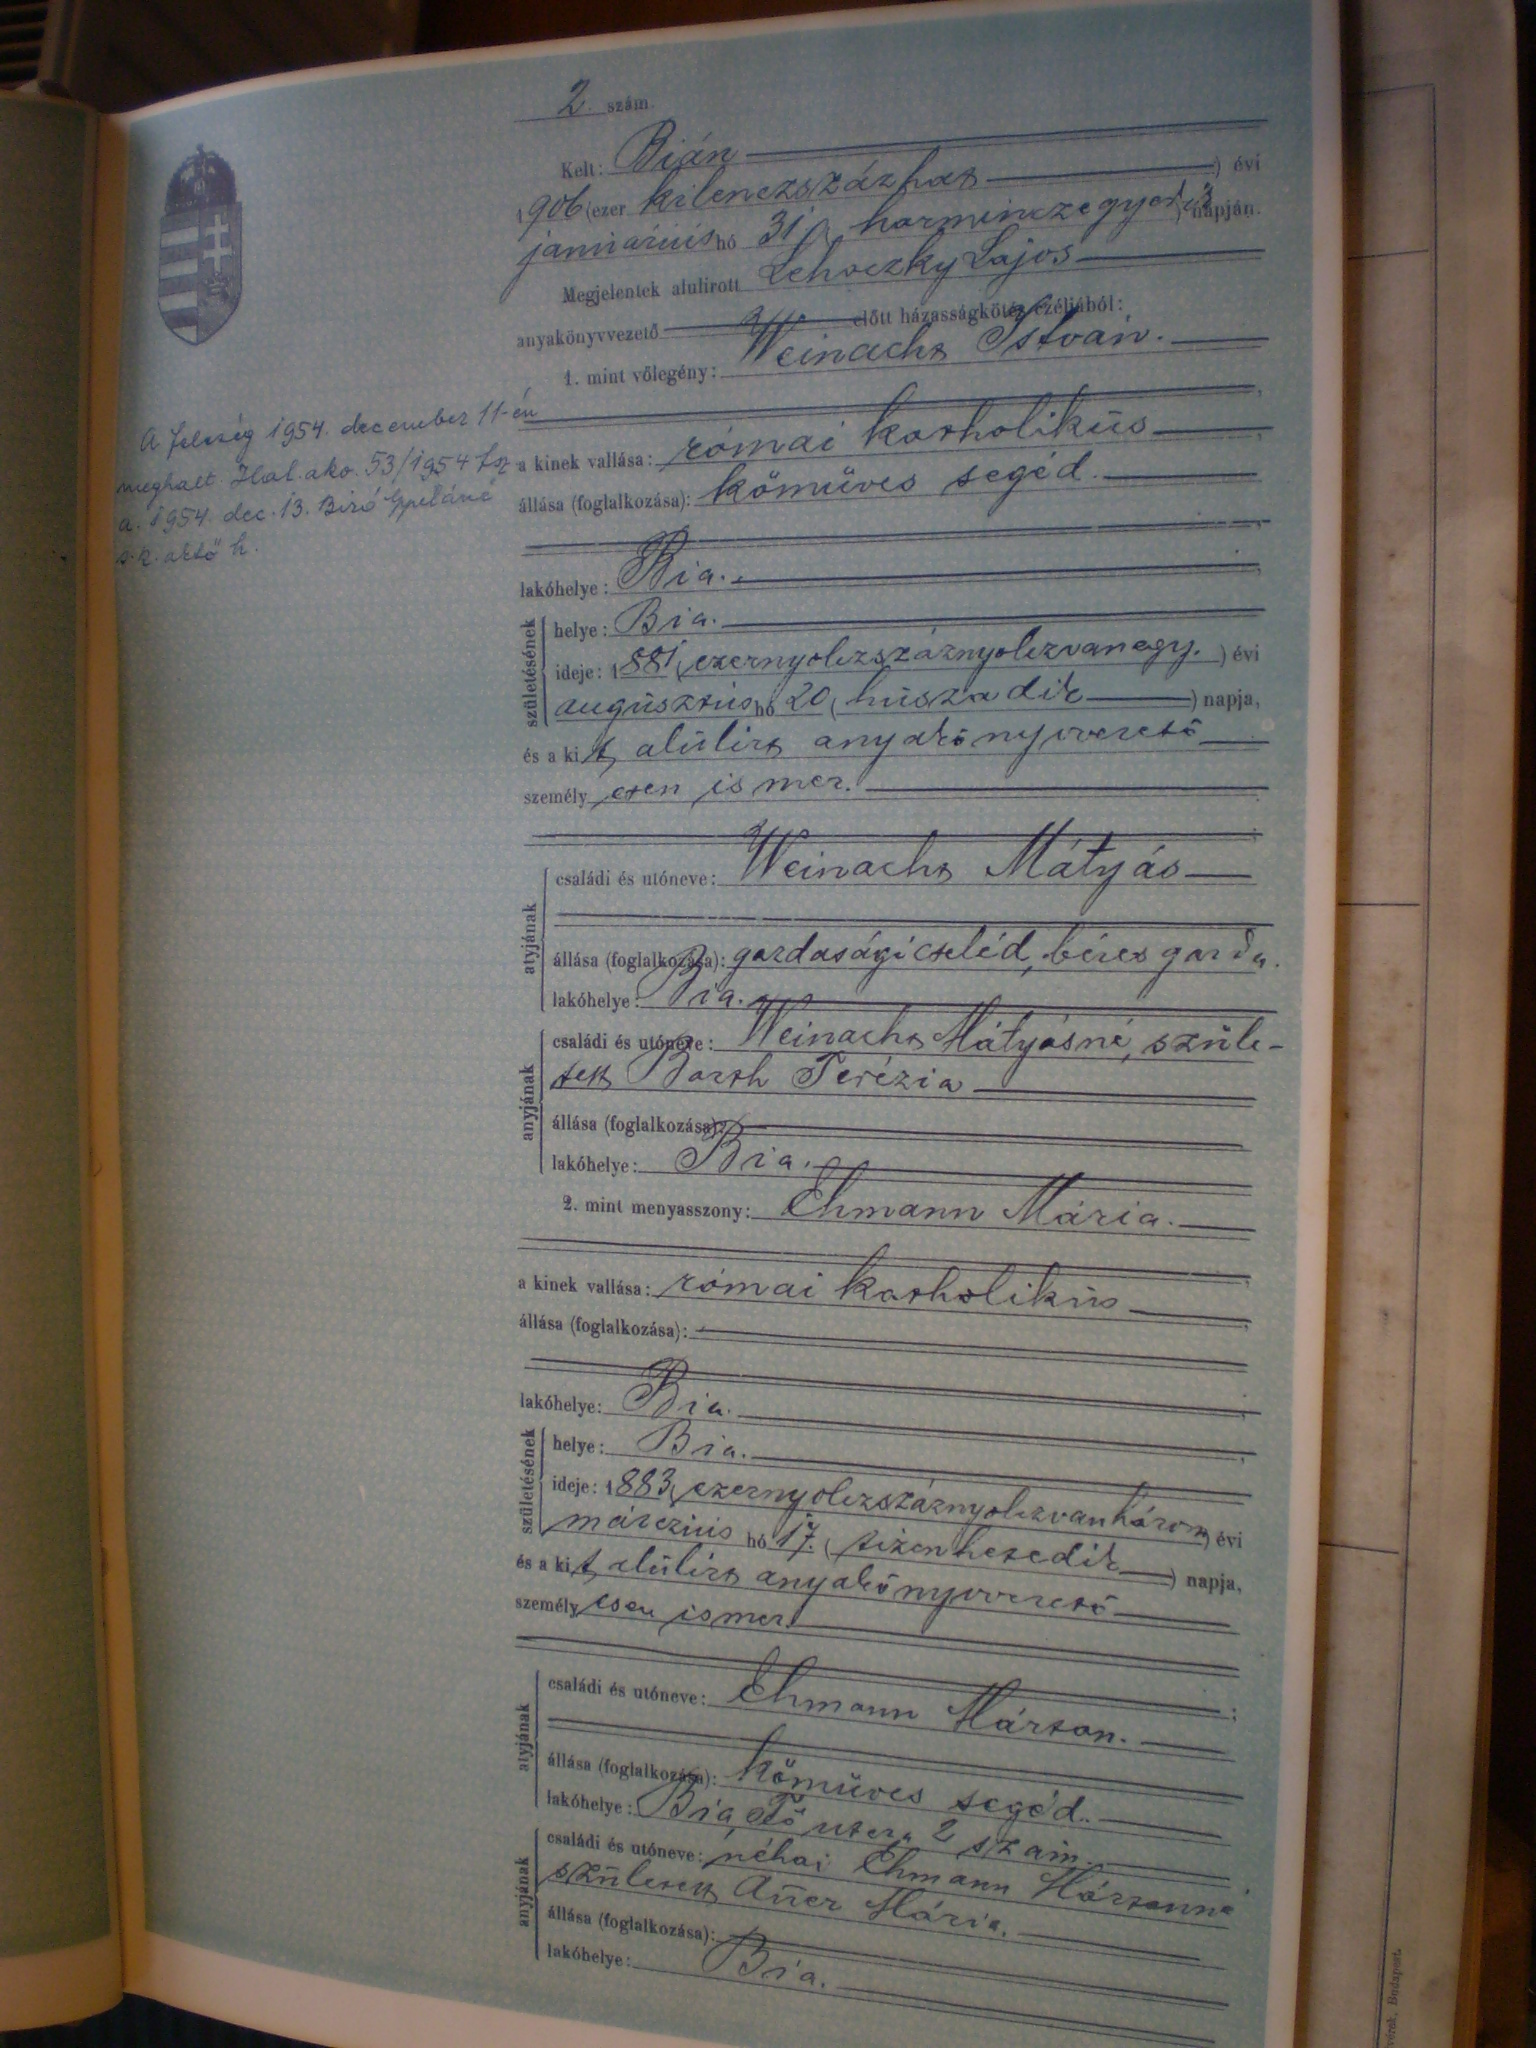 2. szám.
Kelt: Bián
1906 (ezer kilenczszázhat ) évi
januárius hó 31 ( harminczegyedik ) napján.
Megjelentek alulirott Lehoczky Lajos
anyakönyvvezető előtt házasságkötés czéljából:
1. mint vőlegény: Weinacht István.
a kinek vallása: római katholikus
állása (foglalkozása): kőmüves segéd.
lakóhelye: Bia.
születésének
helye: Bia.
ideje: 1881 (ezernyolczszáznyolczvanegy. ) évi
augusztus hó 20 ( huszadik ) napja,
és a kit alulirt anyakönyvvezető
személyesen ismer.
atyjának
családi és utóneve: Weinacht Mátyás
állása (foglalkozása): gazdasági cseléd, béres gazda.
lakóhelye: Bia.
anyjának
családi és utóneve: Weinacht Mátyásné, szüle-
tett Barth Terézia
állása (foglalkozása):
lakóhelye: Bia.
2. mint menyasszony: Ehmann Mária.
a kinek vallása: római katholikus
állása (foglalkozása):
lakóhelye: Bia.
születésének
helye: Bia.
ideje: 1883 (ezernyolczszáznyolczvanhárom ) évi
márczius hó 17. ( tizenhetedik ) napja,
és a kit alulirt anyakönyvvezető
személyesen ismer.
atyjának
családi és utóneve: Ehmann Márton.
állása (foglalkozása): kőmüves segéd.
lakóhelye: Bia, Fő utcza 2 szám.
anyjának
családi és utóneve: néhai Ehmann Mártonné
született Auer Mária.
állása (foglalkozása):
lakóhelye: Bia.
A feleség 1954. december 11-én
meghalt. Hal. ako. 53/1954 fsz
a. 1954. dec. 13. Biró
s.k. aktő h.
Budapest.